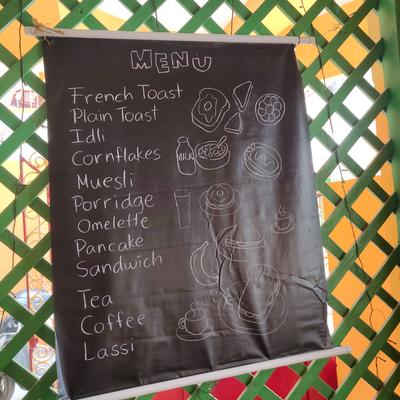 MENU
French Toast
Plain Toast
Idli
Cornflakes
MILK
Muesli
Porridge
Omelette
Pancake
Sandwich
Tea
Coffee
Lassi